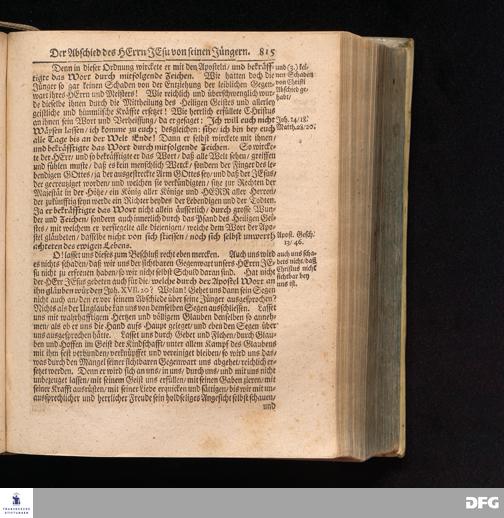 Der Abschied des HErrn JEsu von seinen Jüngern. 815
Denn in dieser Ordnung wirckete er mit den Aposteln/ und bekräff-
tigte das Wort durch mitfolgende Zeichen. Wie hatten doch die
Jünger so gar keinen Schaden von der Entziehung der leiblichen Gegen-
wart ihres HErrn und Meisters! Wie reichlich und überschwenglich wur-
de dieselbe ihnen durch die Mittheilung des Heiligen Geistes und allerley
geistliche und himmlische Kräffte ersetzet! Wie herrlich erfüllete Christus
an ihnen sein Wort und Verheissung/ da er gesaget: Ich will euch nicht
Wäysen lassen/ ich komme zu euch; desgleichen: sihe/ ich bin bey euch
alle Tage bis an der Welt Ende! Dann er selbst wirckete mit ihnen/
und bekräfftigte das Wort durch mitfolgende Zeichen. So wircke-
te der HErr/ und so bekräfftigte er das Wort/ daß alle Welt sehen/ greiffen
und fühlen muste/ daß es kein menschlich Werck/ sondern der Finger des le-
bendigen GOttes/ ja der ausgestreckte Arm GOttes sey/ und daß der JEsus/
der gecreutziget worden/ und welchen sie verkündigten/ sitze zur Rechten der
Majestät in der Höhe/ ein König aller Könige und HERR aller Herren/
der zukünfftig seyn werde ein Richter beydes der Lebendigen und der Todten.
Ja er bekräfftigte das Wort nicht allein äusserlich/ durch grosse Wun-
der und Zeichen/ sondern auch innerlich durch das Pfand des Heiligen Gei-
stes/ mit welchem er versiegelte alle diejenigen/ welche dem Wort der Apo-
stel gläubeten/ dasselbe nicht von sich stiessen/ noch sich selbst unwerth
achteten des ewigen Lebens.
O! lasset uns dieses zum Beschluß recht eben mercken. Auch uns wird
es nichts schaden/ daß wir uns der sichtbaren Gegenwart unsers HErrn JE-
su nicht zu erfreuen haben/ so wir nicht selbst Schuld daran sind. Hat nicht
der HErr JEsus gebeten auch für die/ welche durch der Apostel Wort an
ihn gläuben würden Joh. XVII. 20? Wolan! Gehet uns dann sein Segen
nicht auch an/ den er vor seinem Abschiede über seine Jünger ausgesprochen?
Nichts als der Unglaube kan uns von demselben Segen ausschliessen. Lasset
uns mit wahrhafftigem Hertzen und völligem Glauben denselben so anneh-
men/ als ob er uns die Hand aufs Haupt geleget/ und eben den Segen über
uns ausgesprochen hätte. Lasset uns durch Gebet und Flehen/ durch Glau-
ben und Hoffen im Geist der Kindschafft/ unter allem Kampf des Glaubens
mit ihm fest verbunden/ verknüpffet und vereiniget bleiben/ so wird uns das/
was durch den Mangel seiner sichtbaren Gegenwart uns abgehet/ reichlich er-
setzet werden. Denn er wird sich an uns/ in uns/ durch uns/ und mit uns nicht
unbezeuget lassen/ mit seinem Geist uns erfüllen/ mit seinen Gaben zieren/ mit
seiner Krafft ausrüsten/ mit seiner Liebe erquicken und sättigen/ bis wir mit un-
aussprechlicher und herrlicher Freude sein holdseliges Angesicht selbst schauen/
und
und (3.) kei-
nen Schaden
von Christi
Abschied ge-
habt/
Joh. 14/18.
Matth. 28/20.
Apost. Gesch.
13/46.
auch uns scha-
dets nicht/ daß
Christus nicht
sichtbar bey
uns ist.
FRANCKESCHE
STIFTUNGEN
DFG